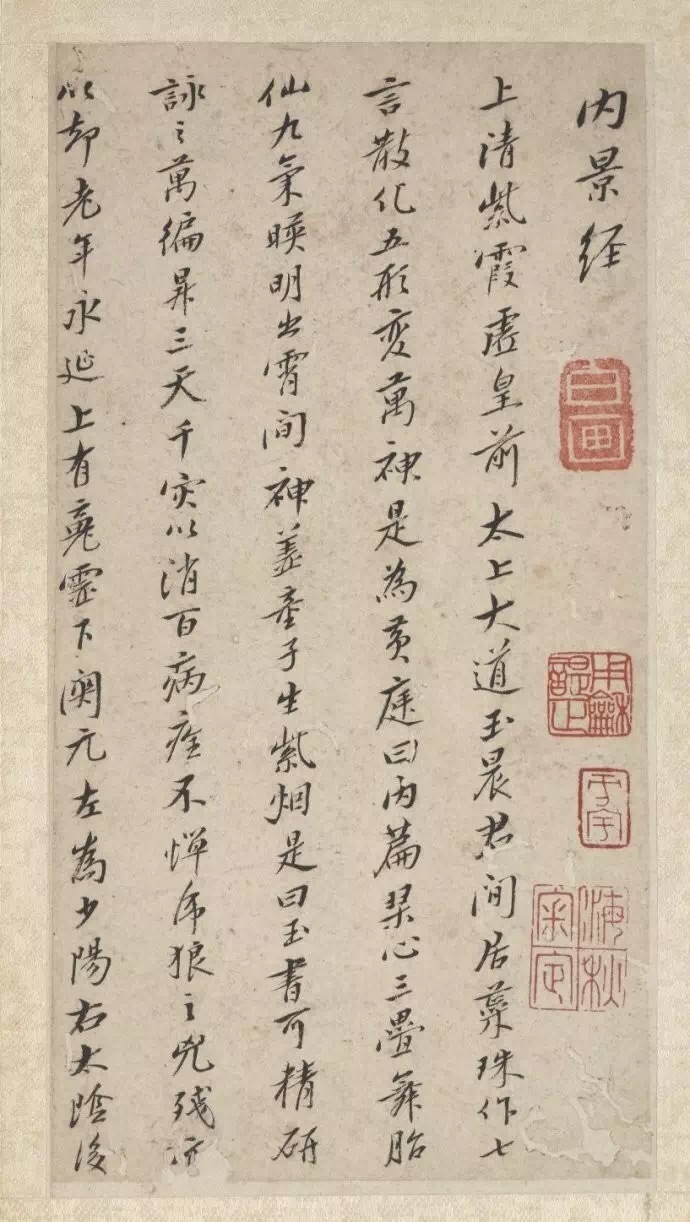 内景経
上清紫霞虚皇前太上大道玉晨君閒居蘂珠作七
言散化五形変萬神是為黄庭曰内篇琴心三疊舞胎
仙九氣暎明出霄間神盖童子生紫烟是曰玉書可精研
詠之萬徧昇三天千灾以消百病痊不憚虎狼之兇残亦
以却老年永延上有䰟靈下関元左為少陽右太陰後